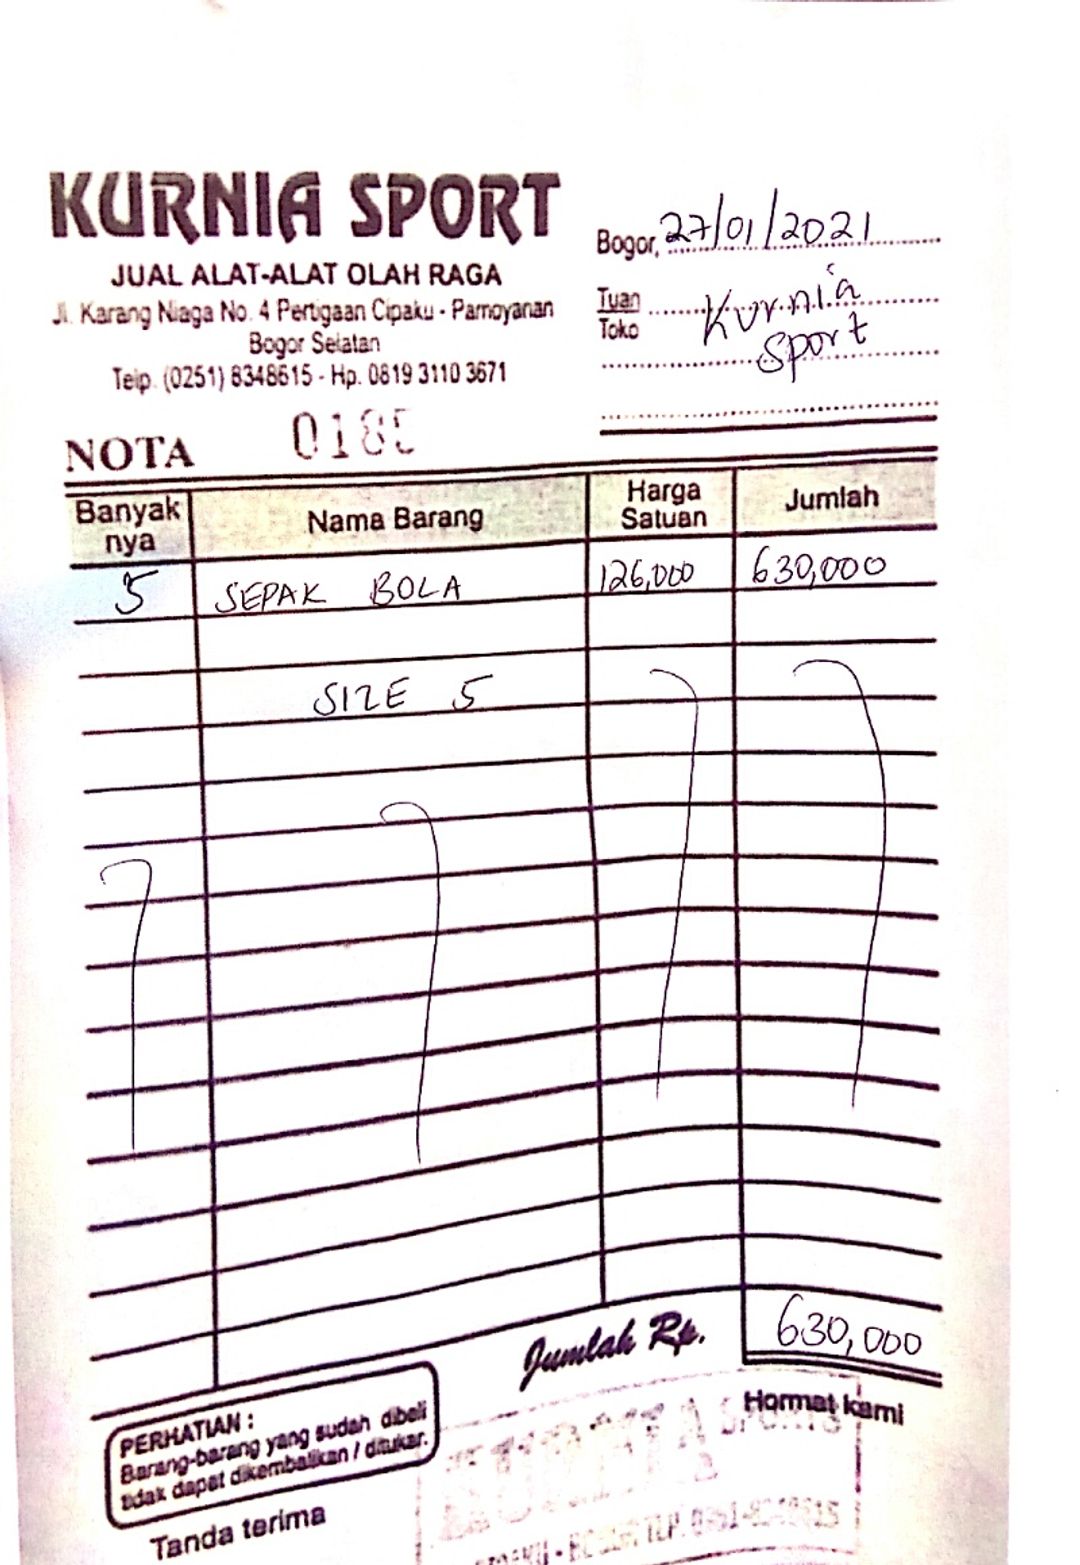 KURNIA SPORT
JUAL ALAT-ALAT OLAH RAGA
Jl. Karang Niaga No. 4 Pertigaan Cipaku - Pamoyanan
Bogor Selatan
Telp. (0251) 8348615 - Hp. 0819 3110 3671
Bogor, 27/01/2021
Tuan
Toko
Kurnia
Sport
NOTA
Banyak nya Nama Barang Harga Satuan Jumlah
5 SEPAK BOLA 126,000 630,000
SIZE 5
Jumlah Rp. 630,000
PERHATIAN :
Barang-barang yang sudah dibeli
tidak dapat dikembalikan / ditukar.
Hormat kami
Tanda terima